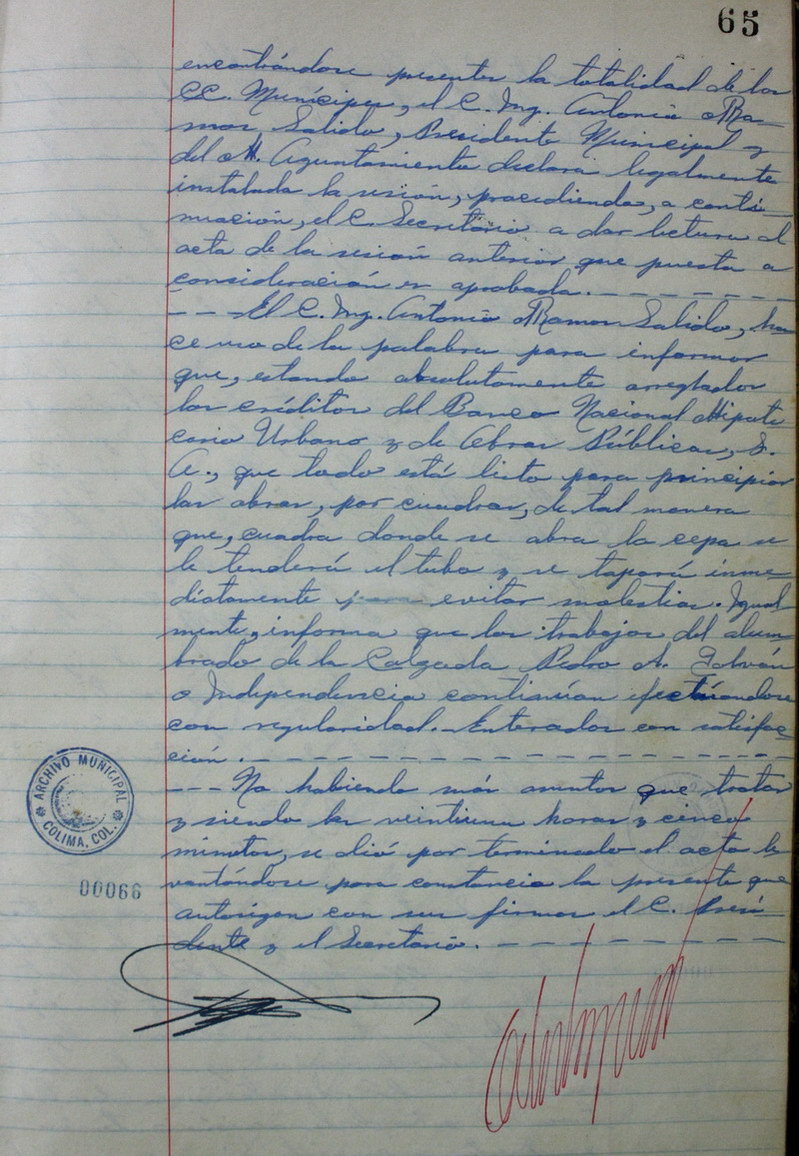 65
encontrándose presentes la totalidad de los
CC. Munícipes, el C. Ing. Antonio Ra-
mos Salido, Presidente Municipal y
del H. Ayuntamiento declara legalmente
instalada la sesión, procediendo, a conti-
nuación, el C. Secretario a dar lectura al
acta de la sesión anterior que puesta a
consideración es aprobada. - - - - - - -
- - - El C. Ing. Antonio Ramos Salido, ha-
ce uso de la palabra para informar
que, estando absolutamente arreglados
los créditos del Banco Nacional Hipote
cario Urbano y de Obras Públicas, S.
A., que todo está listo para principiar
las obras, por cuadras, de tal manera
que, cuadra donde se abra la cepa se
le tenderá el tubo y se tapará inme-
diatamente para evitar molestias. Igual
mente, informa que los trabajos del alum
brado de la Calzada Pedro A. Galván
o Independencia continúan efectuándose
con regularidad. - Enterados con satisfac-
ción. - - - - - - - - - - - - - - - - - -
- - - No habiendo más asuntos que tratar
y siendo las veintiuna horas y cinco
minutos, se dió por terminado el acto le
vantándose para constancia la presente que
autorizan con sus firmas el C. Presi-
dente y el Secretario. - - - - - - - - - -
ARCHIVO MUNICIPAL
COLIMA, COL.
00066